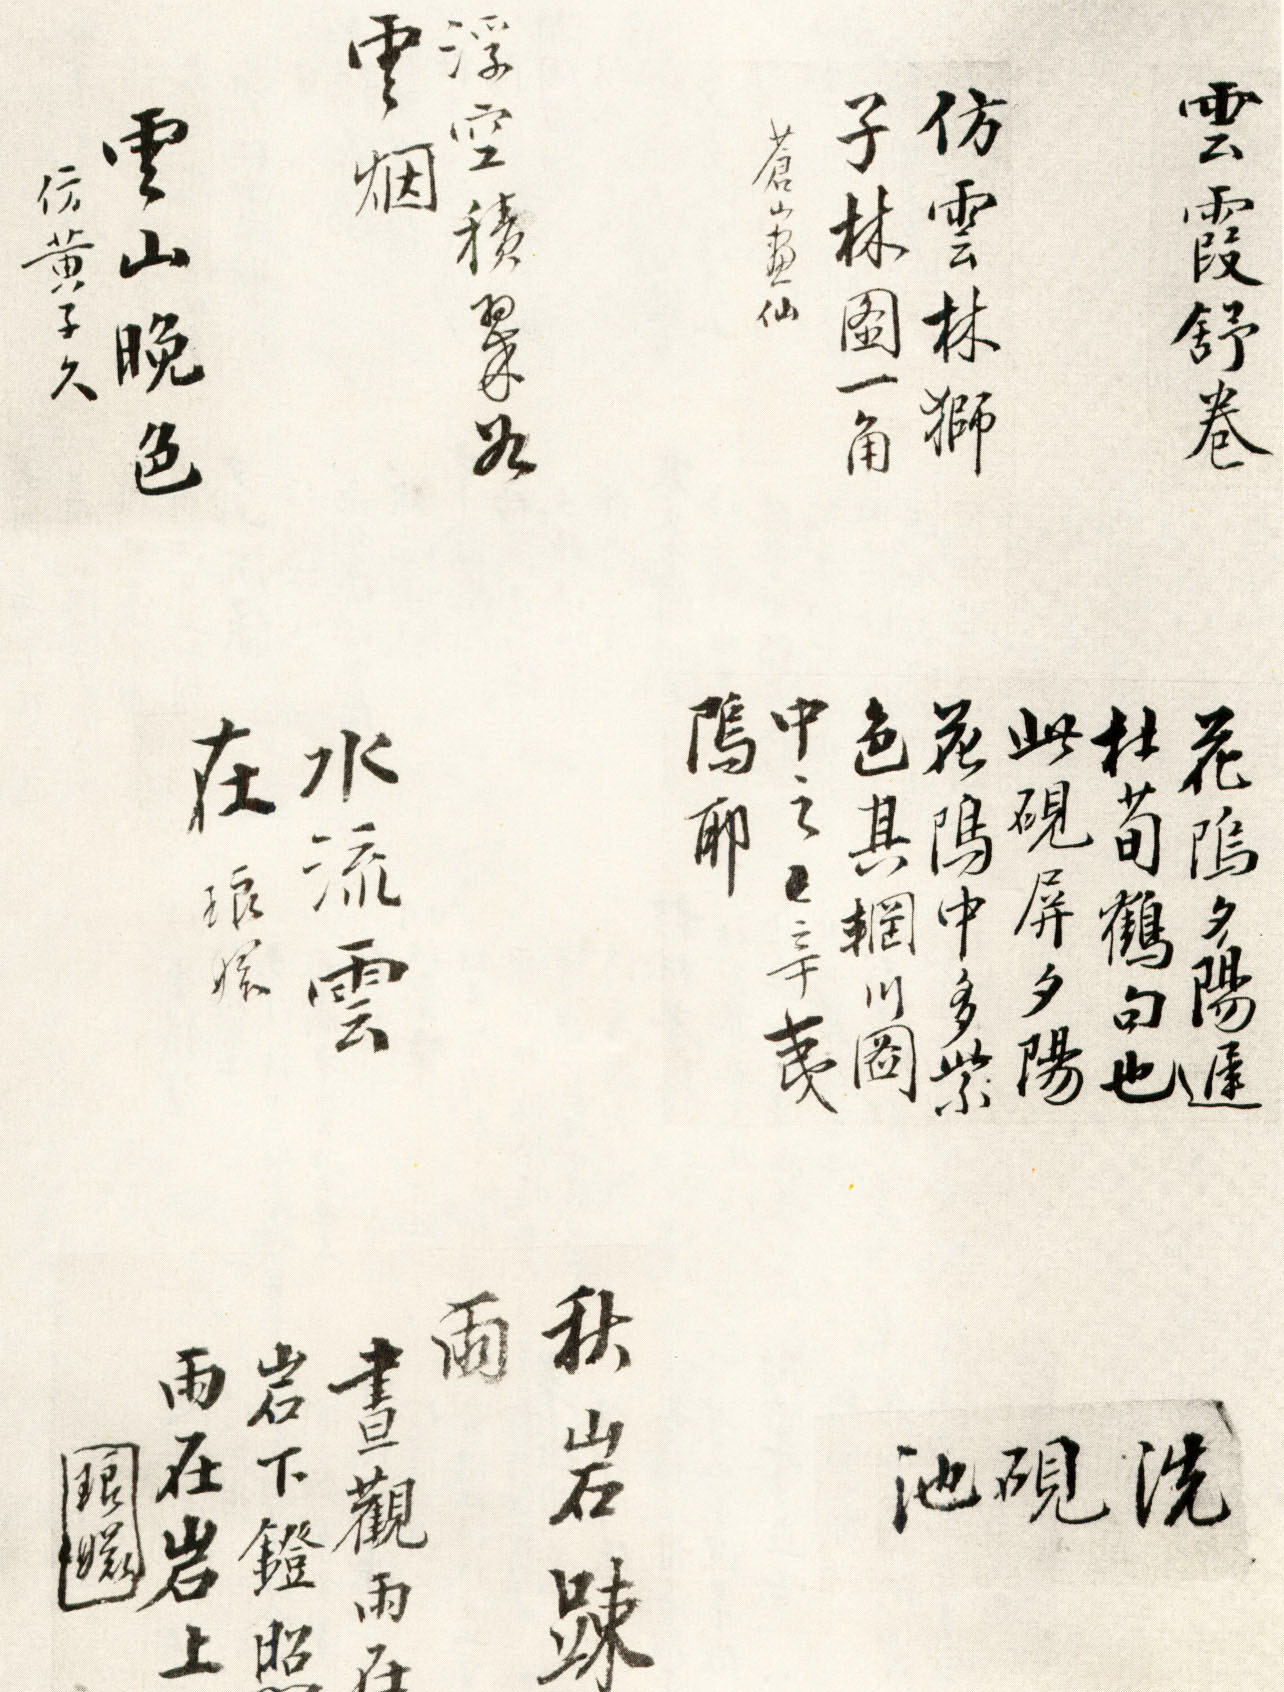 雲霞舒卷
仿雲林獅
子林圖一角
蒼山畫仙
浮空積翠如
雲烟
雲山晚色
仿黃子久
花隖夕陽遲
杜荀鶴句也
此硯屏夕陽
花隖中多紫
色其輞川圖
中之辛夷
隖耶
水流雲
在
琅嬛
洗硯池
秋岩疎
雨
晝觀雨在
岩下鐙照
雨在岩上
琅嬛